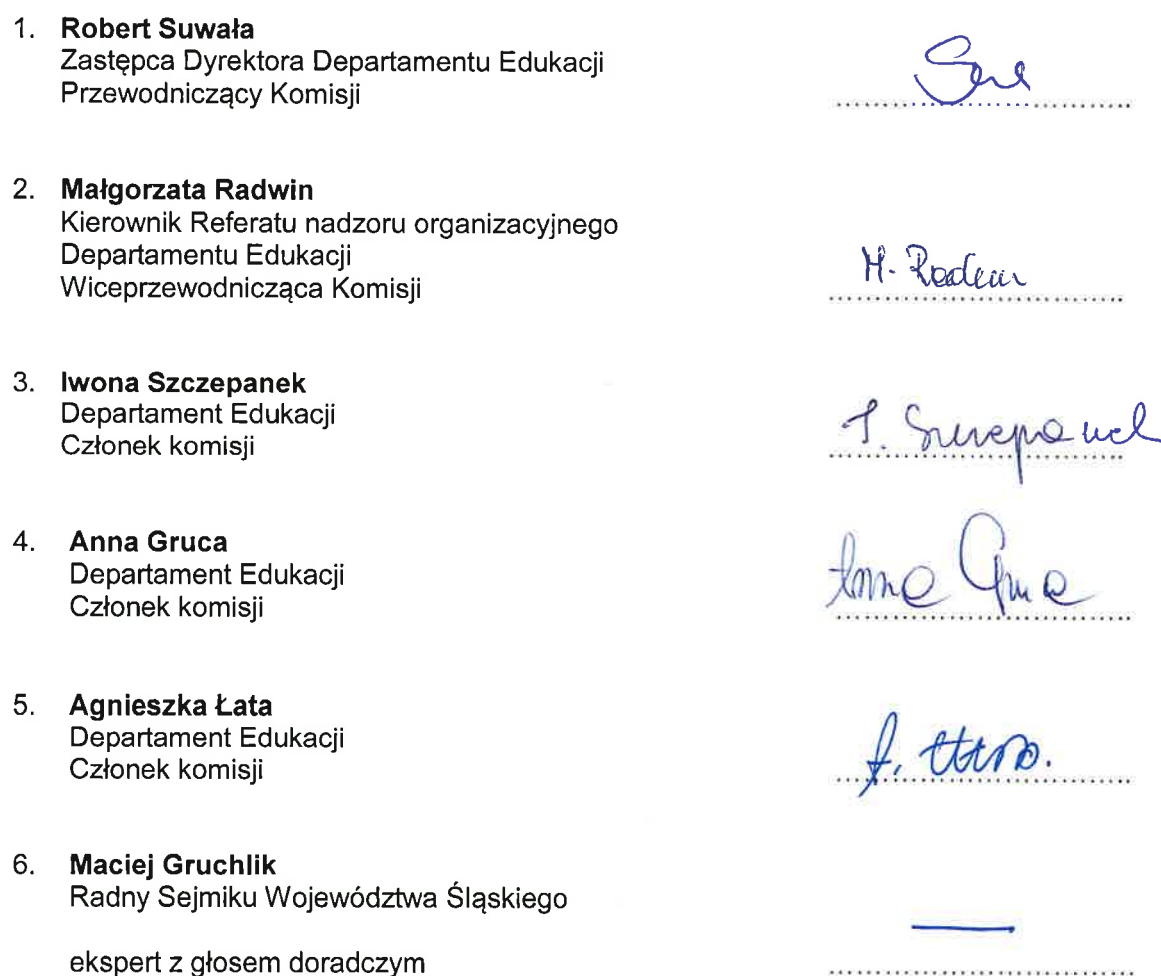 1. Robert Suwała
Zastępca Dyrektora Departamentu Edukacji
Przewodniczący Komisji
2. Małgorzata Radwin
Kierownik Referatu nadzoru organizacyjnego
Departamentu Edukacji
Wiceprzewodnicząca Komisji
M. Radwin
3. Iwona Szczepanek
Departament Edukacji
Członek komisji
I. Szczepanek
4. Anna Gruca
Departament Edukacji
Członek komisji
Anna Gruca
5. Agnieszka Łata
Departament Edukacji
Członek komisji
6. Maciej Gruchlik
Radny Sejmiku Województwa Śląskiego
ekspert z głosem doradczym